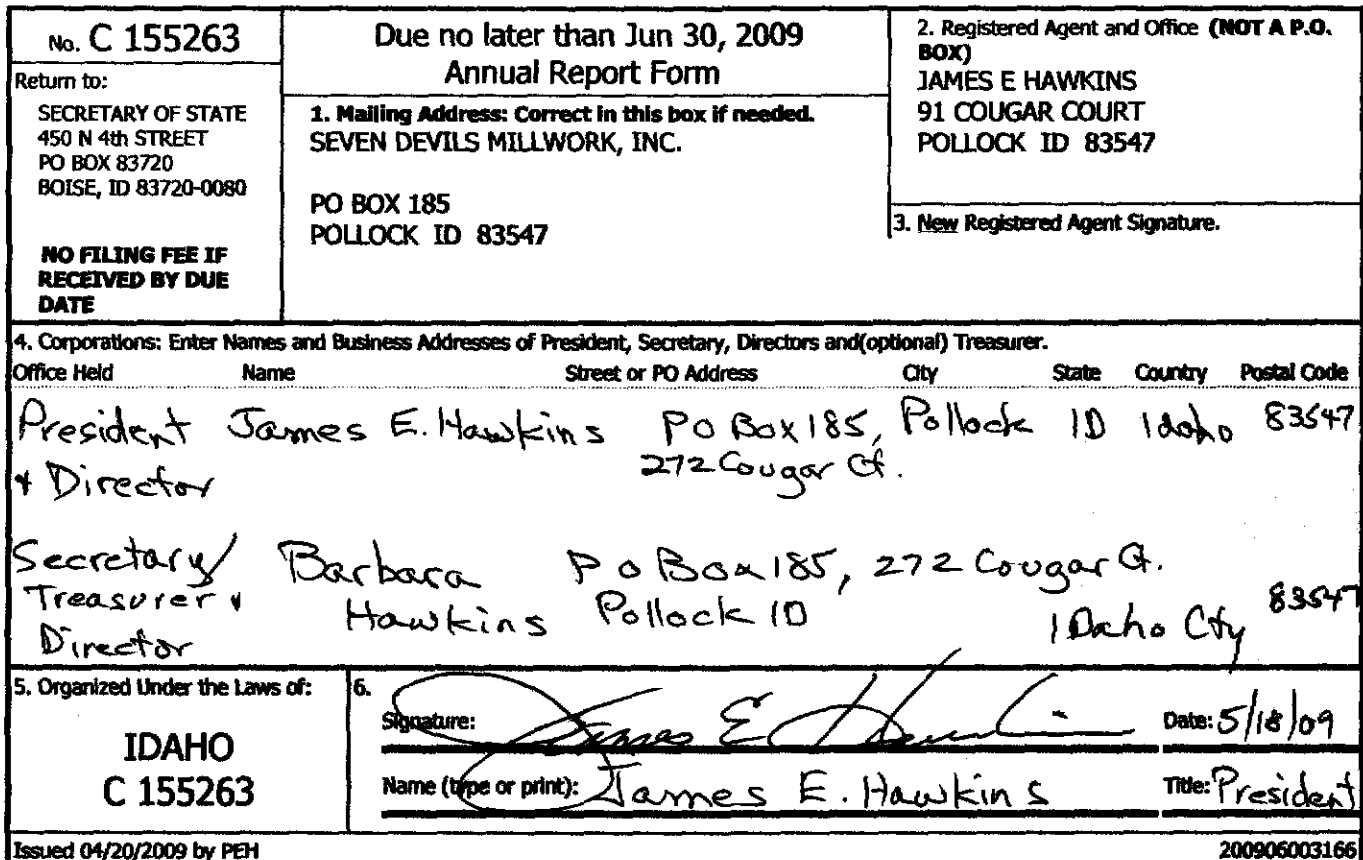 No. C 155263
Return to:
SECRETARY OF STATE
450 N 4th STREET
PO BOX 83720
BOISE, ID 83720-0080
NO FILING FEE IF
RECEIVED BY DUE
DATE
Due no later than Jun 30, 2009
Annual Report Form
1. Mailing Address: Correct in this box if needed.
SEVEN DEVILS MILLWORK, INC.
PO BOX 185
POLLOCK ID 83547
2. Registered Agent and Office (NOT A P.O.
BOX)
JAMES E HAWKINS
91 COUGAR COURT
POLLOCK ID 83547
3. New Registered Agent Signature.
4. Corporations: Enter Names and Business Addresses of President, Secretary, Directors and(optional) Treasurer.
Office Held Name Street or PO Address City State Country Postal Code
President James E. Hawkins PO Box 185, Pollock ID Idaho 83547
& Director 272 Cougar Ct.
Secretary/ Barbara PO Box 185, 272 Cougar Ct.
Treasurer & Hawkins Pollock ID Idaho Cty 83547
Director
5. Organized Under the Laws of:
IDAHO
C 155263
6.
Signature: James E Hawkins Date: 5/18/09
Name (type or print): James E. Hawkins Title: President
Issued 04/20/2009 by PEH 200906003166